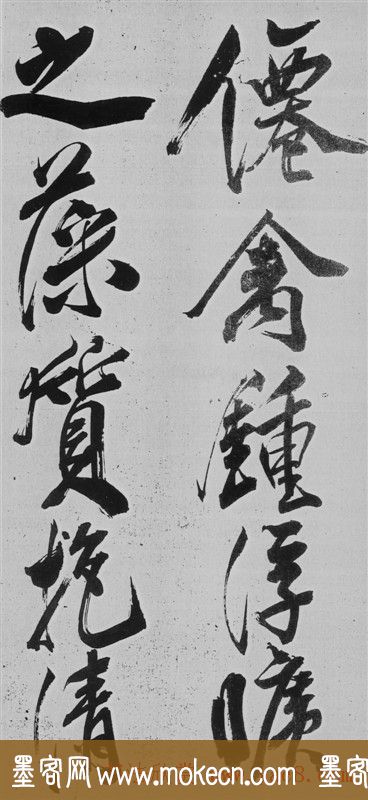 僊禽鍾浮曠
之藻質抱清
墨客网 www.mokecn.com 墨客网